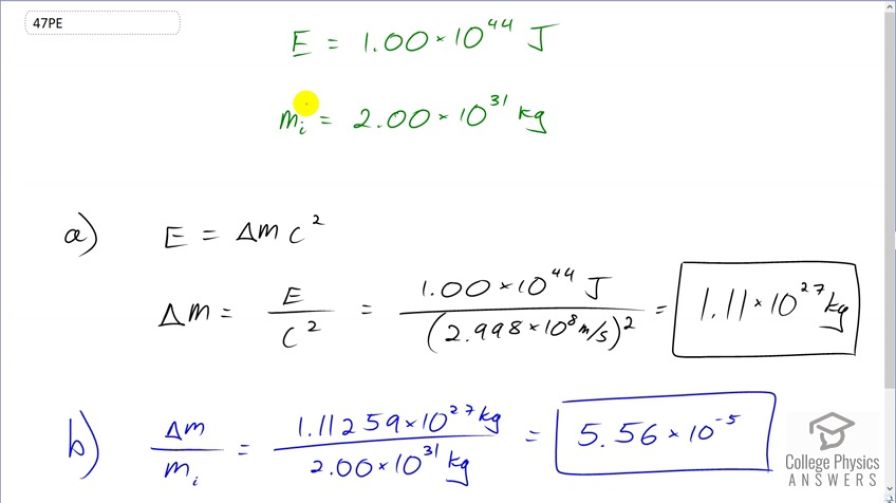 47PE
E = 1.00 × 10^44 J
m_i = 2.00 × 10^31 kg
a) E = Δm c^2
Δm = E / c^2 = 1.00 × 10^44 J / (2.998 × 10^8 m/s)^2 = 1.11 × 10^27 kg
b) Δm / m_i = 1.11259 × 10^27 kg / 2.00 × 10^31 kg = 5.56 × 10^-5
College Physics
ANSWERS